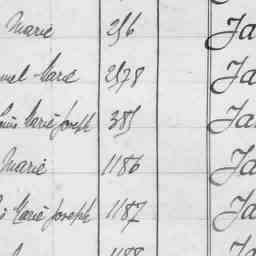 Marie 256 Ja
Marie 2578 Ja
Marie Joseph 385 Ja
Marie 1186 Ja
Marie Joseph 1187 Ja
1188 Ja